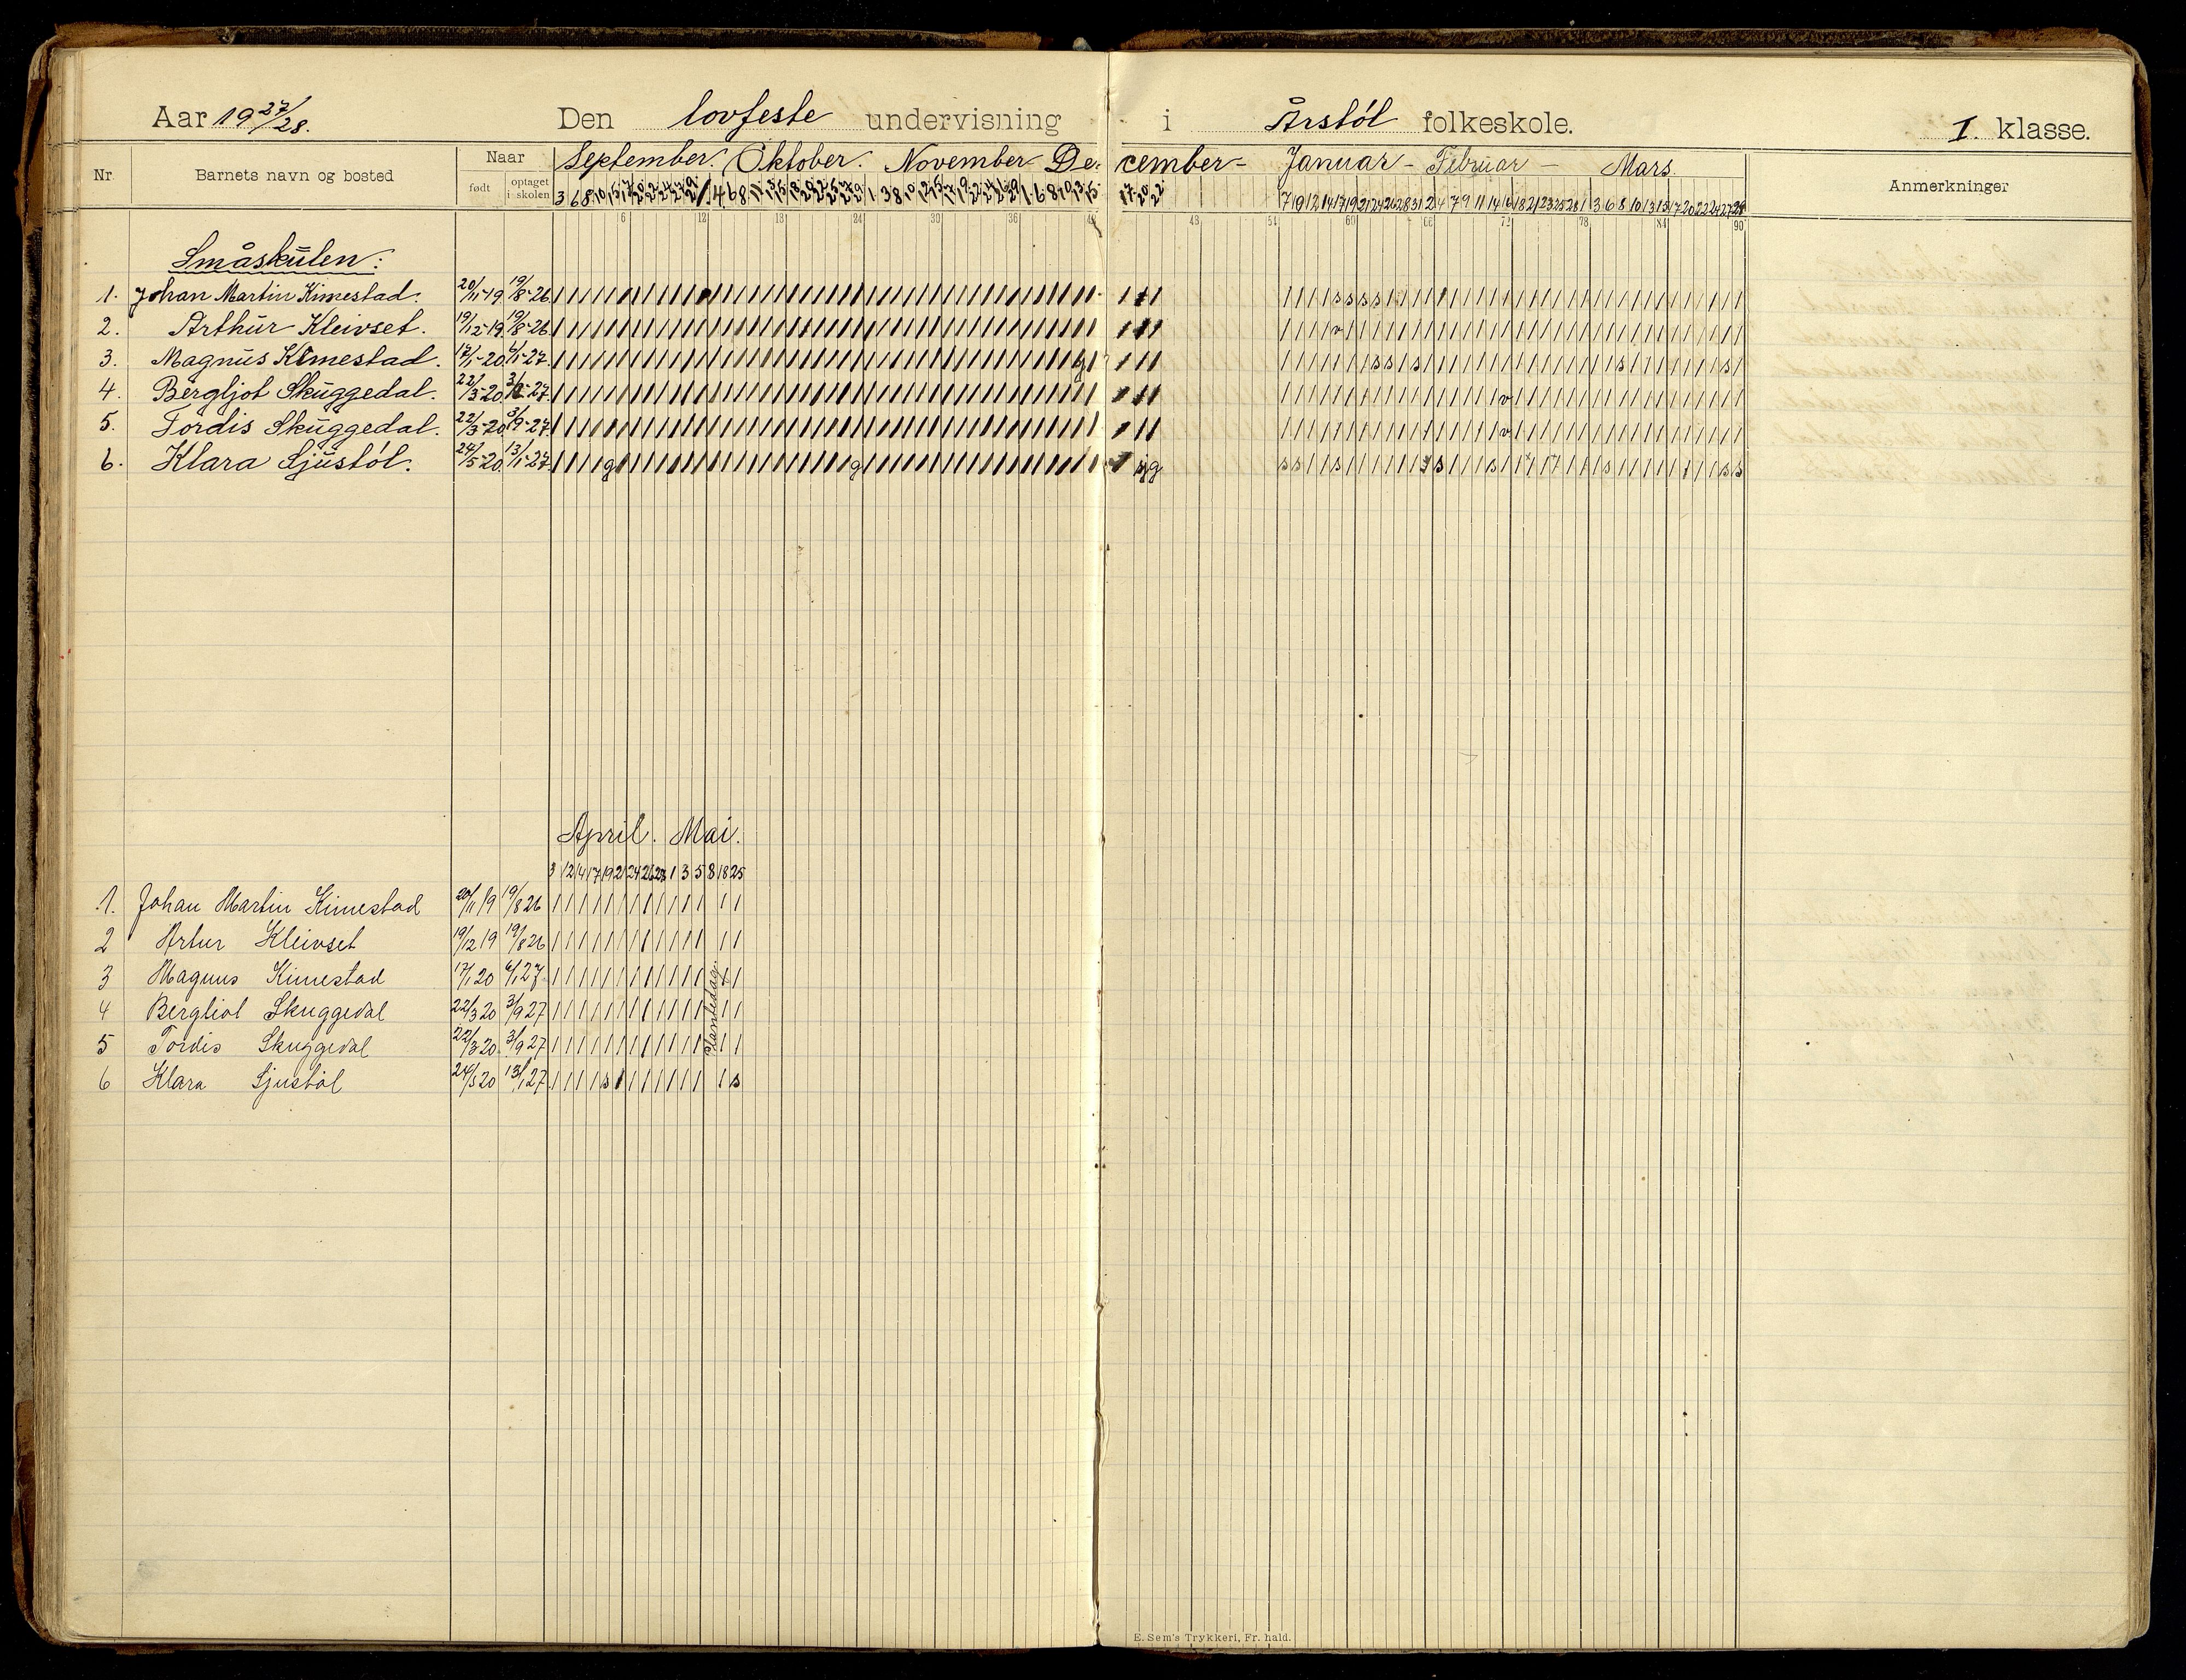 Aar 1927/28. Den lovfeste undervisning i Årstól folkeskole. I. klasse.
Nr. Barnets navn og bosted Naar født optaget i skolen September. Oktober. November December - Januar - Februar - Mars. Anmerkninger
6 12 18 24 30 36 42 48 54 60 66 72 78 84 90
Småskulen:
1. Johan Martin Kimestad. 20/11-19. 19/8-26.
2. Arthur Kleivset. 19/12-19. 19/8-26.
3. Magnus Kimestad. 17/1-20. 6/1-27.
4. Bergljot Skuggedal. 22/3-20. 3/9-27.
5. Tordis Skuggedal. 22/3-20. 3/9-27.
6. Klara Ljustól. 24/5-20. 13/1-27.
April. Mai.
3 12 14 17 19 21 24 26 28 1 3 5 8 18 25
1. Johan Martin Kimestad 20/11 19 19/8 26
2 Artur Kleivset 19/12 19 19/8 26
3 Magnus Kimestad 17/1 20 6/1 27
4 Bergliot Skuggedal 22/3 20 3/9 27
5 Tordis Skuggedal 22/3 20 3/9 27
6 Klara Ljustøl 24/5 20 13/1 27
Plantedag.
E. Sem's Trykkeri, Fr. hald.